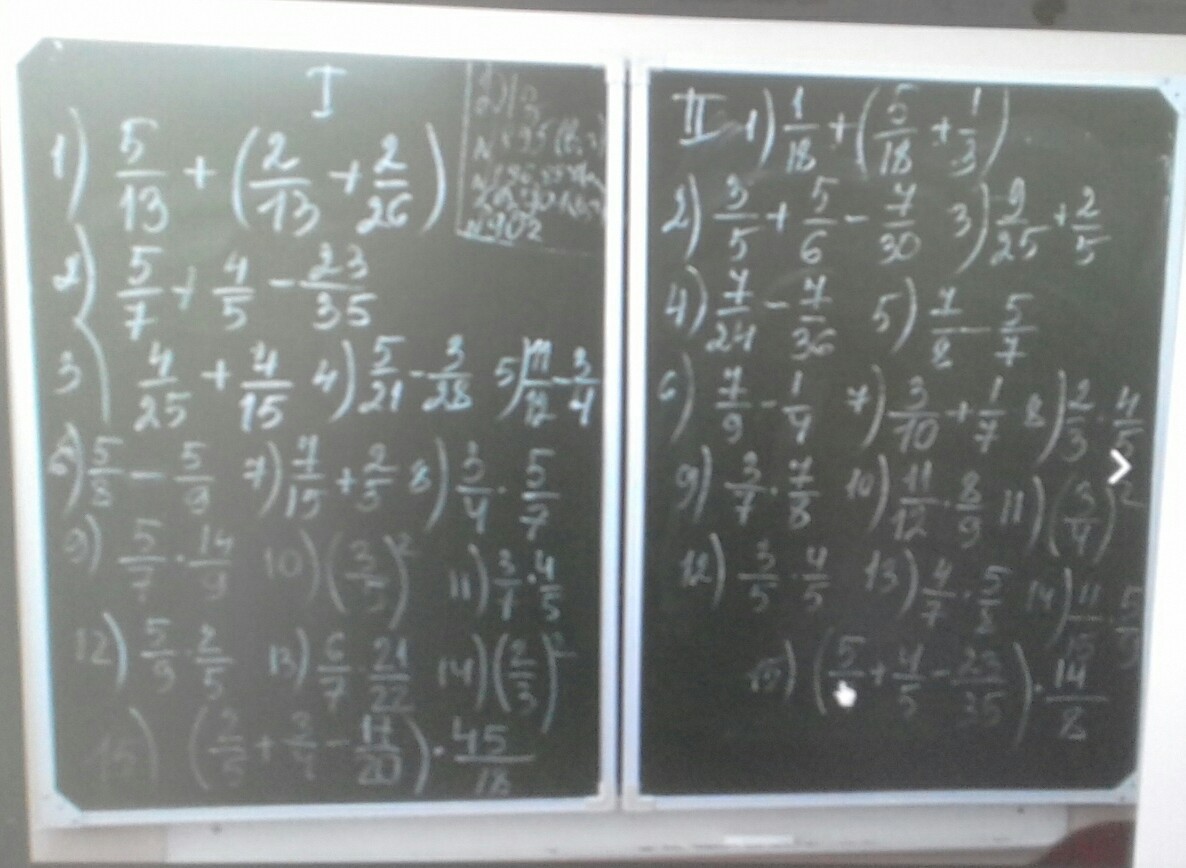 I
1) 5/13 + (2/13 + 2/26)
2) 5/7 + 4/5 - 23/35
3) 4/25 + 4/15 4) 5/21 - 3/28 5) 11/12 - 3/4
6) 5/8 - 5/9 7) 7/15 + 2/3 8) 3/4 · 5/7
9) 5/7 · 14/9 10) (3/5)² 11) 3/7 · 4/5
12) 5/9 · 2/5 13) 6/7 · 21/22 14) (2/3)²
15) (2/5 + 3/4 - 17/20) · 45/18
II 1) 1/18 + (5/18 + 1/3)
2) 3/5 + 5/6 - 7/30 3) 9/25 + 2/5
4) 7/24 - 7/36 5) 7/8 - 5/7
6) 7/9 - 1/4 7) 3/10 + 1/7 8) 2/3 · 4/5
9) 3/7 · 7/8 10) 11/12 · 8/9 11) (3/4)²
12) 3/5 · 4/5 13) 4/7 · 5/8 14) 11/15 · 5/9
15) (5/ + 4/5 - 23/35) · 14/8